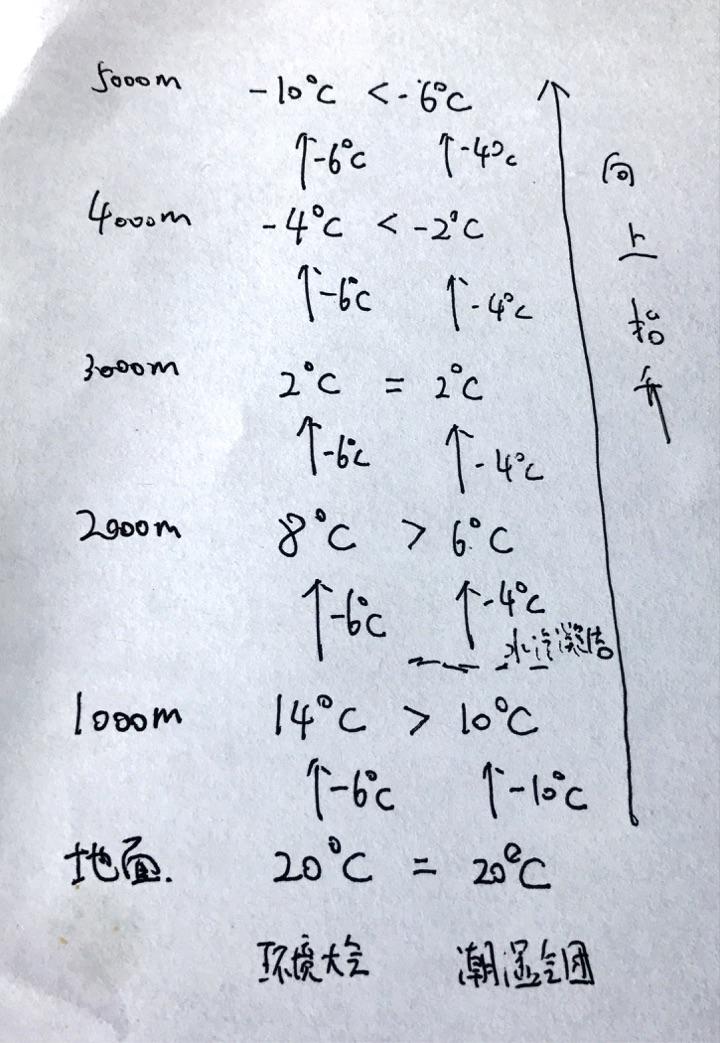 5000m -10°C < -6°C
↑-6°C ↑-4°C
4000m -4°C < -2°C
↑-6°C ↑-4°C
3000m 2°C = 2°C
↑-6°C ↑-4°C
2000m 8°C > 6°C
↑-6°C ↑-4°C
水汽凝结
1000m 14°C > 10°C
↑-6°C ↑-10°C
地面. 20°C = 20°C
环境大气 潮湿气团
向上抬升